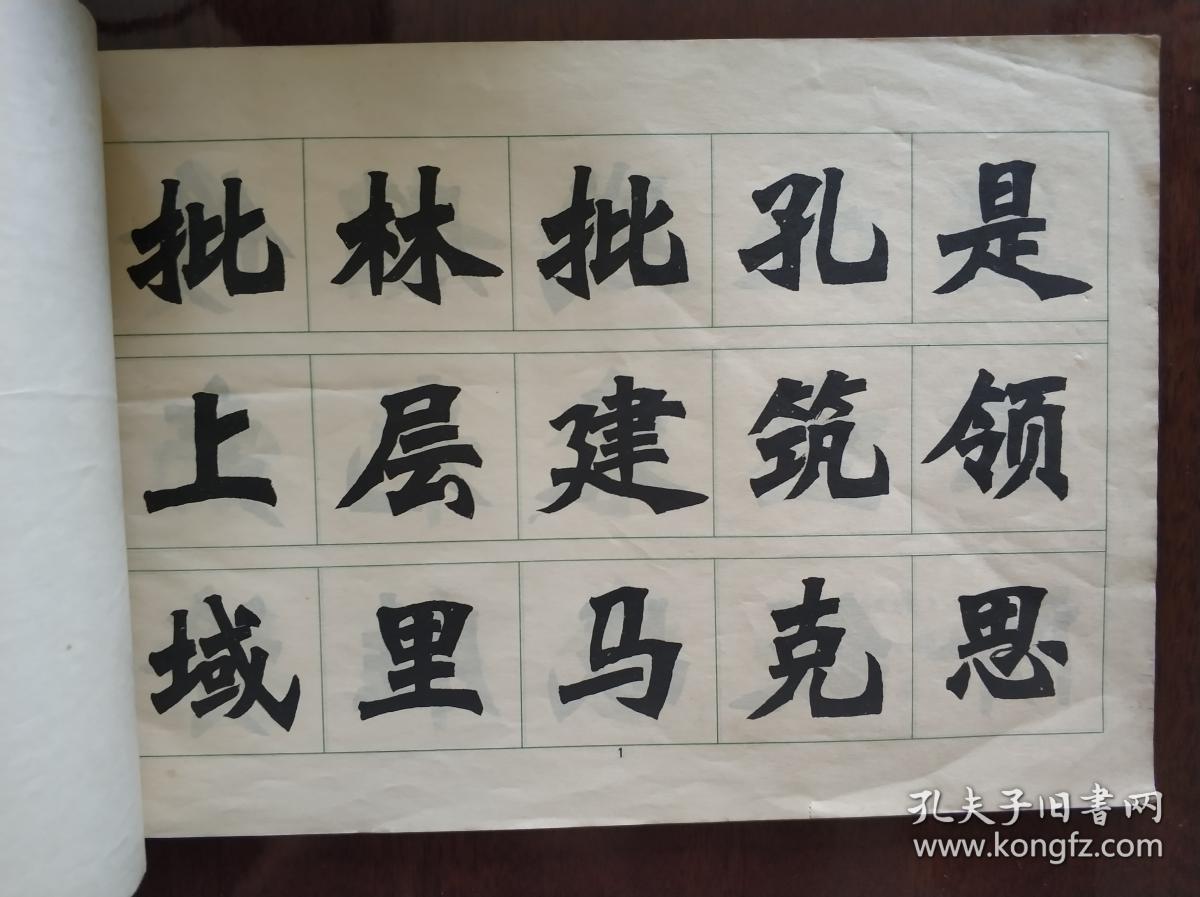 批林批孔是
上层建筑领
域里马克思
1
孔夫子旧書网
www.kongfz.com